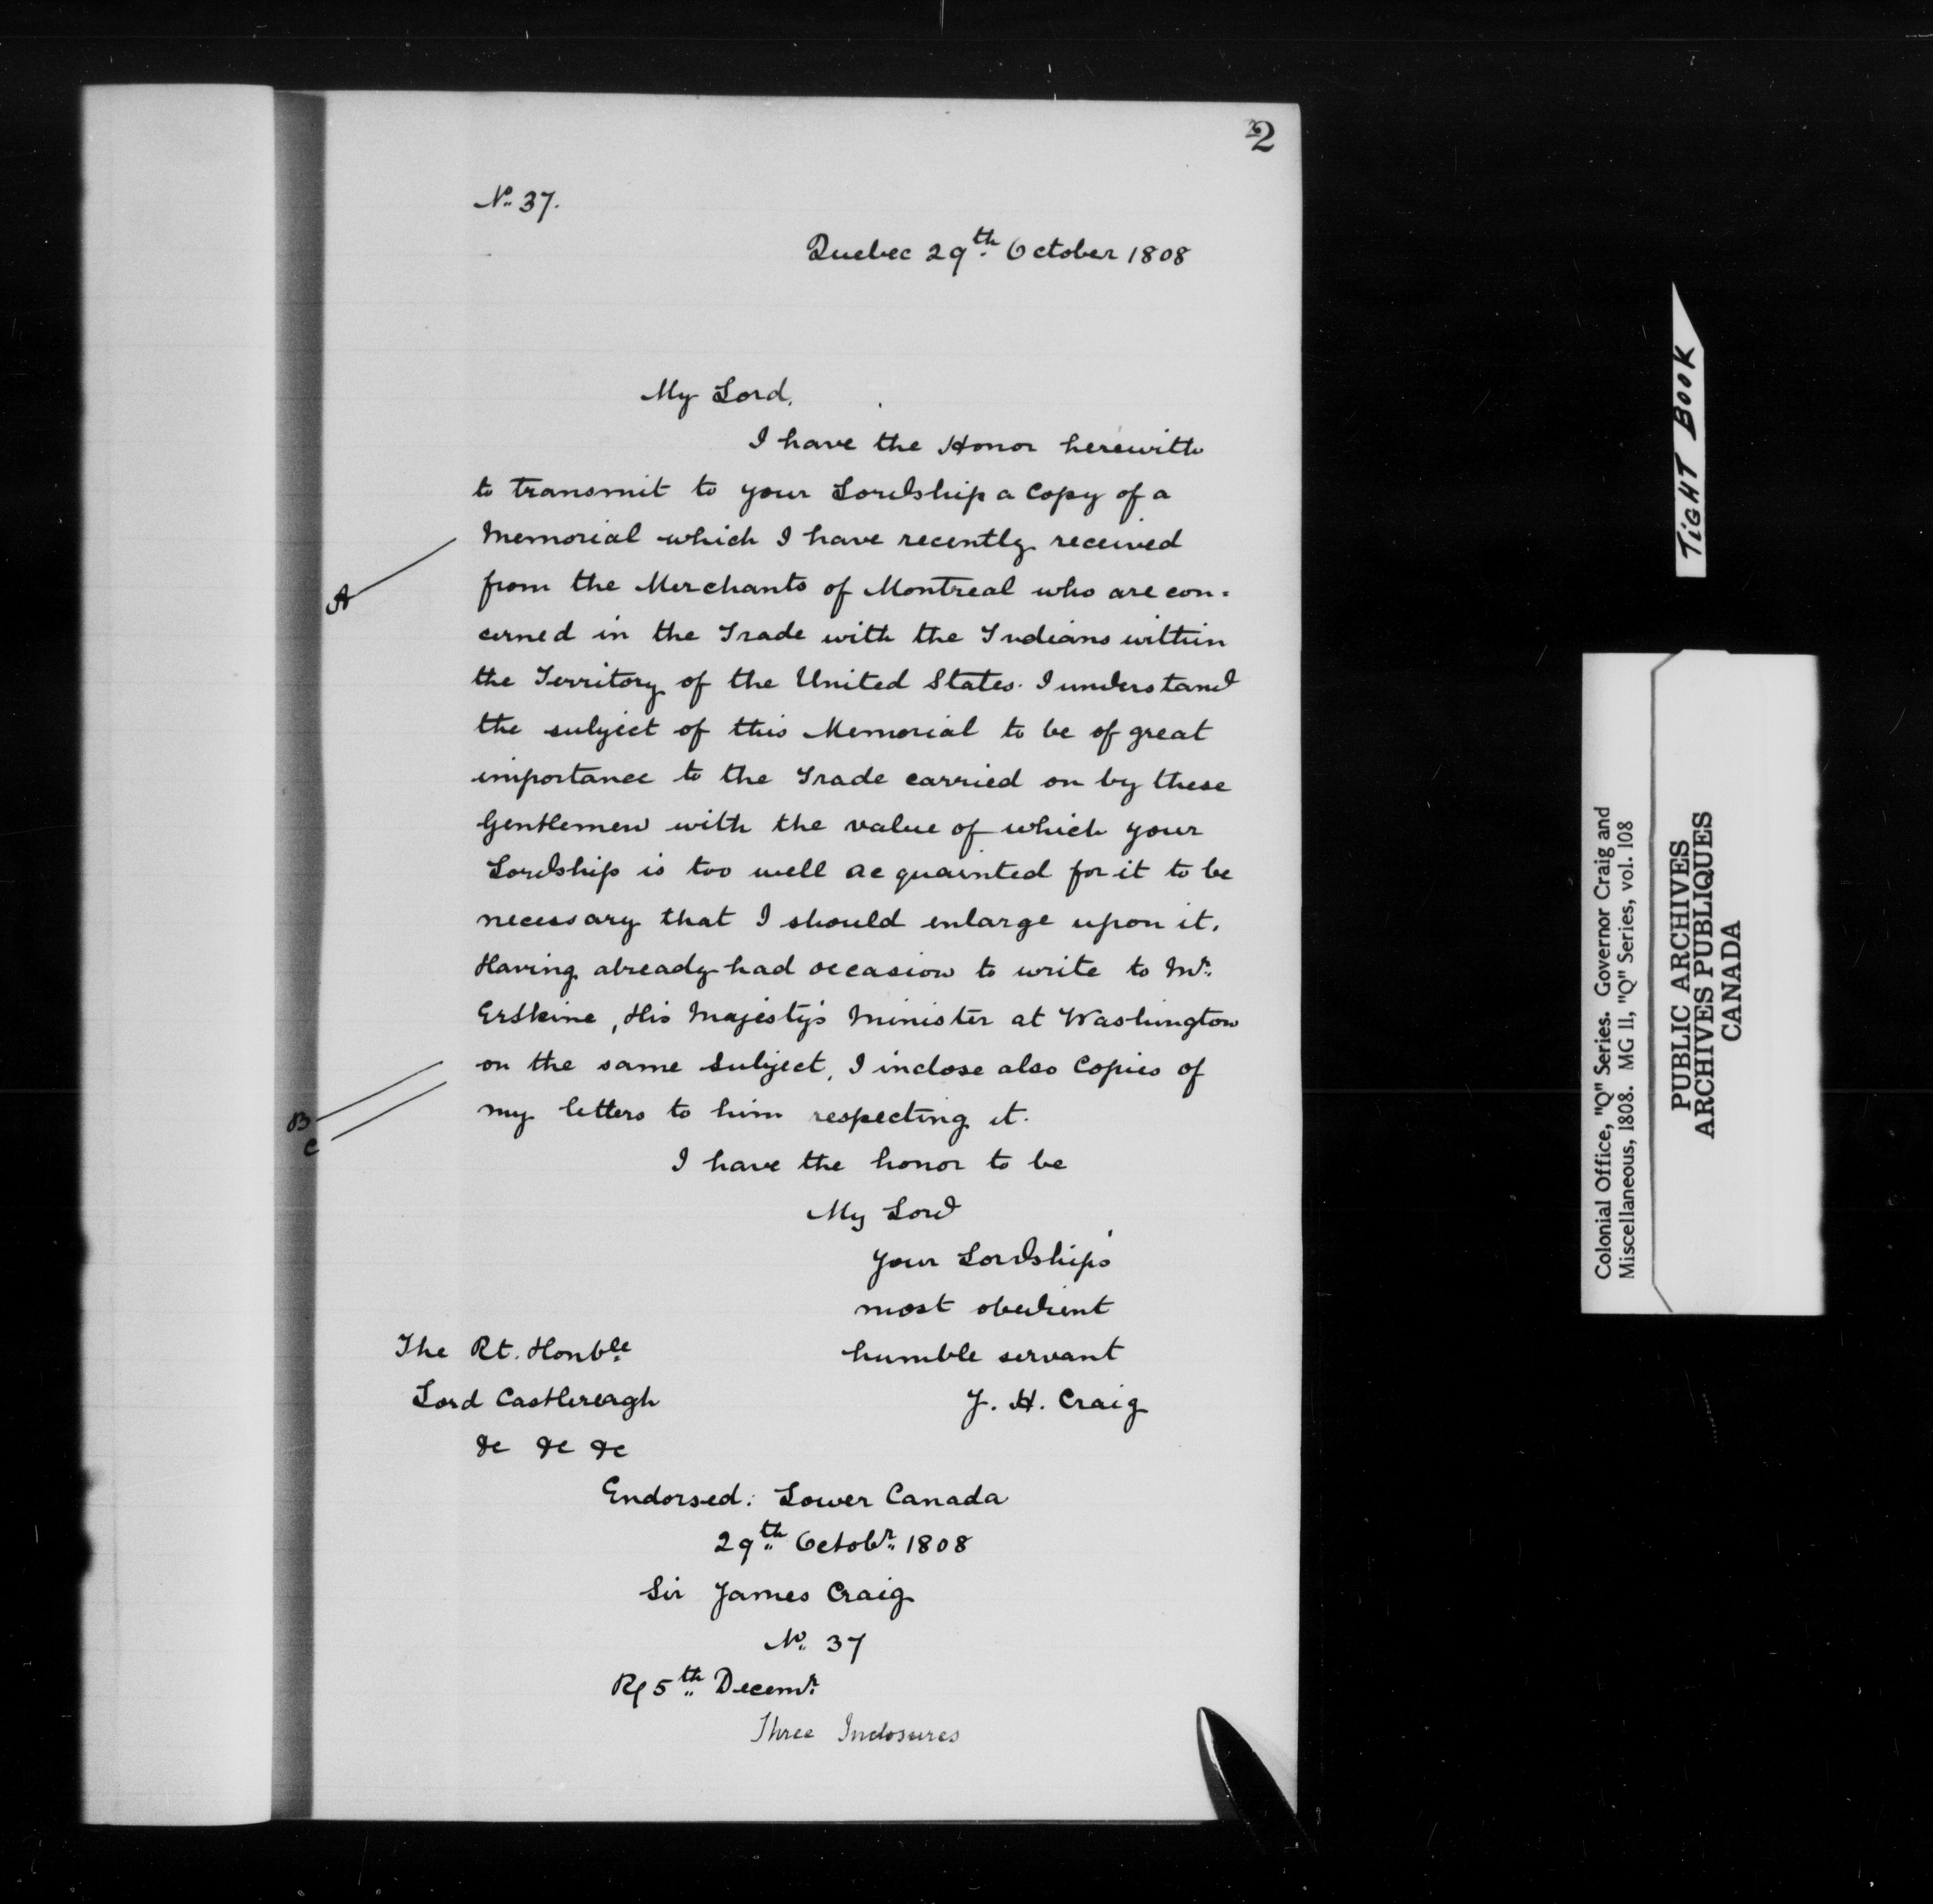 2
No. 37.
Quebec 29th October 1808
My Lord,
I have the Honor herewith
to transmit to your Lordship a Copy of a
Memorial which I have recently received
A
from the Merchants of Montreal who are con=
cerned in the Trade with the Indians within
the Territory of the United States. I understand
the subject of this Memorial to be of great
importance to the Trade carried on by these
Gentlemen with the value of which your
Lordship is too well acquainted for it to be
necessary that I should enlarge upon it.
Having already had occasion to write to Mr.
Erskine, His Majesty's Minister at Washington
on the same subject, I inclose also Copies of
B
C
my letters to him respecting it.
I have the honor to be
My Lord
Your Lordship's
most obedient
humble servant
J. H. Craig
The Rt. Honble
Lord Castlereagh
&c &c &c
Endorsed: Lower Canada
29th Octobr. 1808
Sir James Craig
No. 37
R/ 5th Decemr.
Three Inclosures
TIGHT BOOK
Colonial Office, "Q" Series. Governor Craig and
Miscellaneous, 1808. MG 11, "Q" Series, vol. 108
PUBLIC ARCHIVES
ARCHIVES PUBLIQUES
CANADA